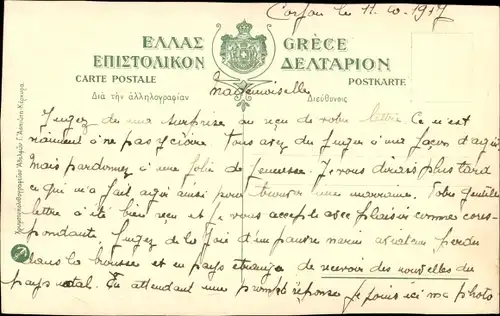 Corfou le 11.10.1917
ΕΛΛΑΣ GRÈCE
ΕΠΙΣΤΟΛΙΚΟΝ ΔΕΛΤΑΡΙΟΝ
CARTE POSTALE POSTKARTE
Διὰ τὴν ἀλληλογραφίαν Διεύθυνσις
Mademoiselle
Jugez de ma surprise au reçu de votre lettre Ce n'est
vraiment à ne pas Vous avez du Juger à ma façon d'agir
Mais pardonnez à une folie de Jeunesse. Je vous dirais plus tard
ce qui m'a fait agir ainsi pour trouver une marraine. Votre gentille
lettre a été bien reçu et Je vous accepte avec plaisir comme corres-
pondante Jugez de la Joie d'un pauvre marin aviateur perdu
dans la brousse et en pays étranger de recevoir des nouvelles du
pays natal. En attendant une prompte réponse Je joins ici ma photo